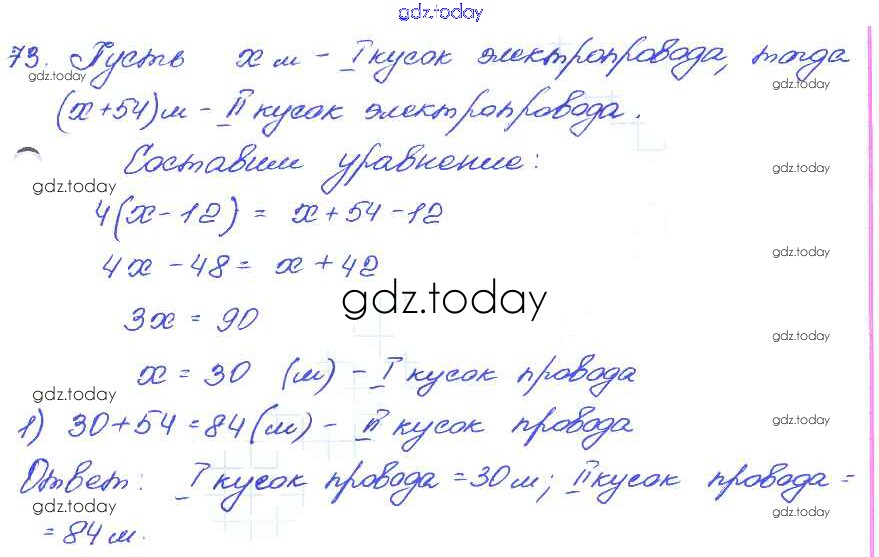 gdz.today
73. Пусть x м - I кусок электропровода, тогда
gdz.today
gdz.today
(x+54) м - II кусок электропровода.
Составим уравнение:
gdz.today
gdz.today
4(x-12) = x+54-12
gdz.today
4x-48 = x+42
gdz.today
3x = 90
gdz.today
x = 30 (м) - I кусок провода
gdz.today
1) 30+54=84(м) - II кусок провода
gdz.today
Ответ: I кусок провода = 30 м; II кусок провода =
gdz.today
gdz.today
= 84 м.